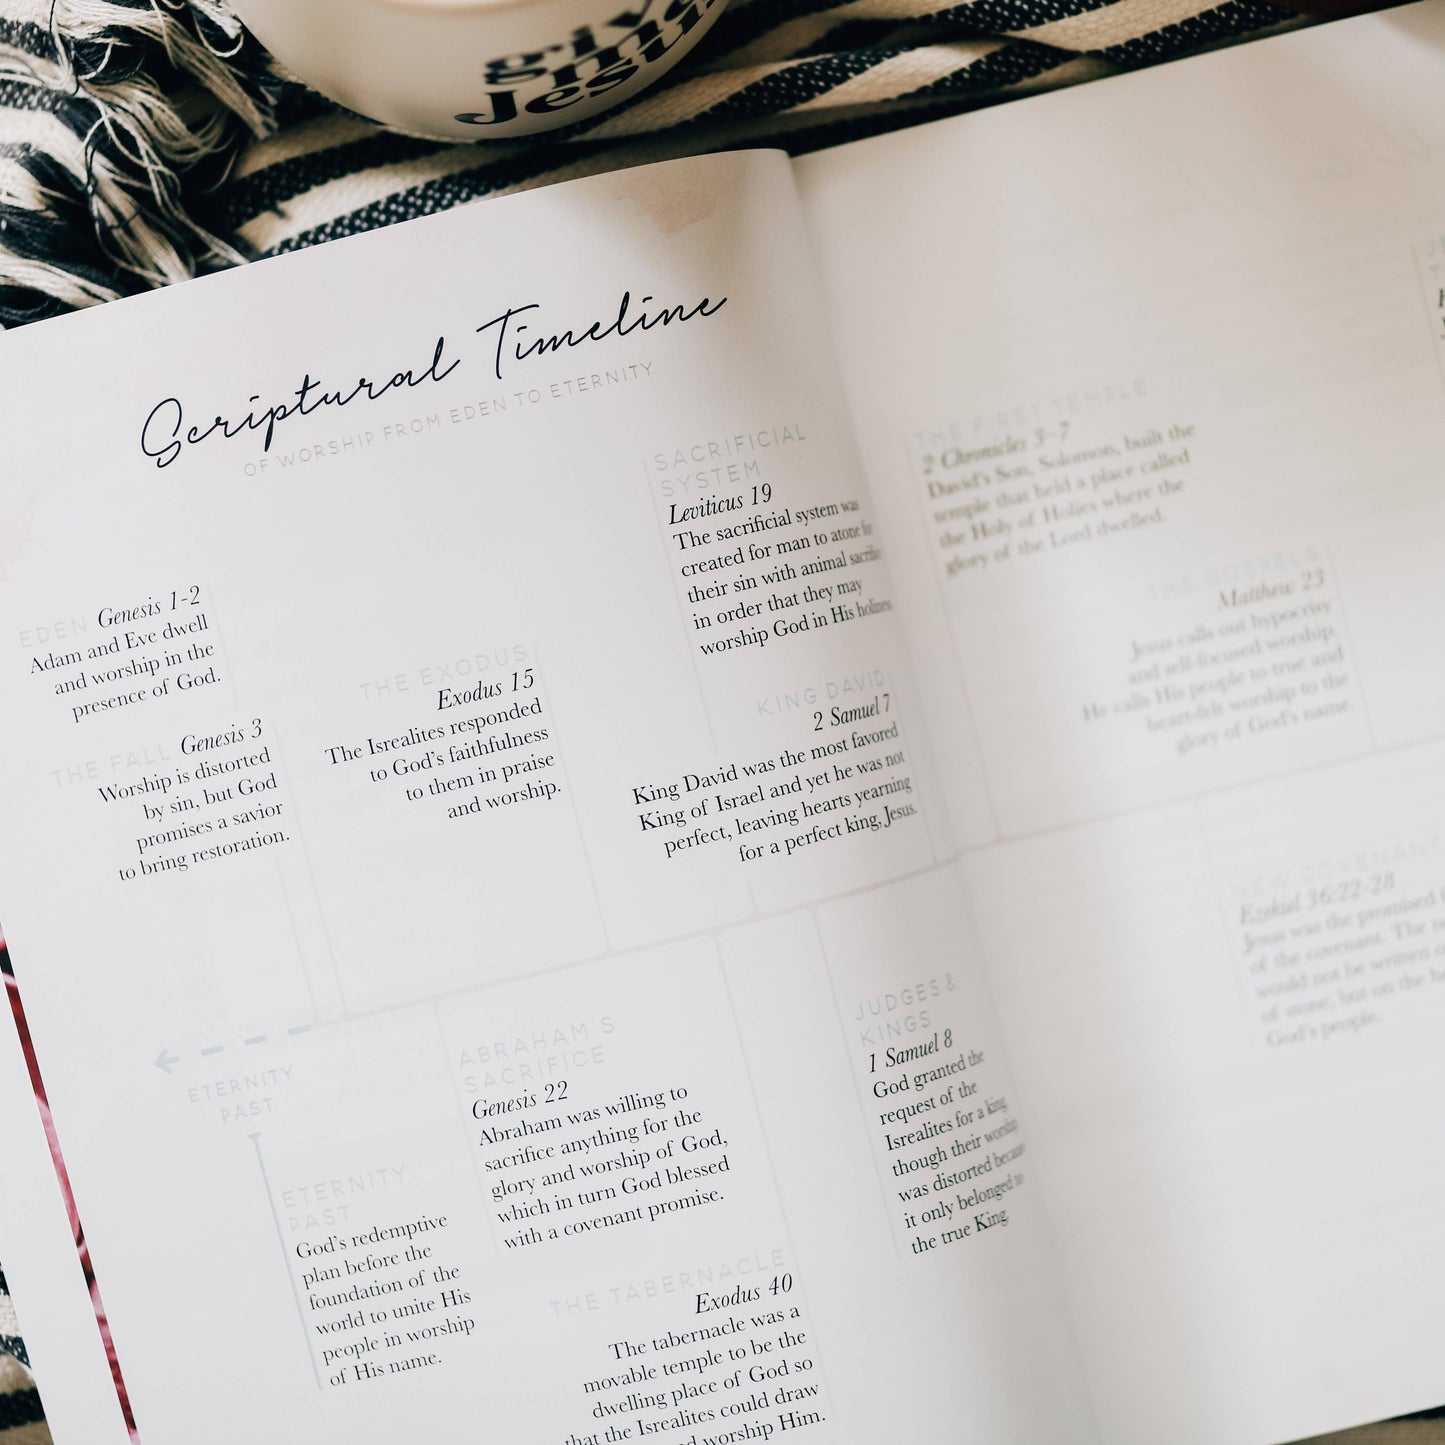 give
me
Jesus
Scriptural Timeline
OF WORSHIP FROM EDEN TO ETERNITY
EDEN Genesis 1-2
Adam and Eve dwell
and worship in the
presence of God.
THE FALL Genesis 3
Worship is distorted
by sin, but God
promises a savior
to bring restoration.
THE EXODUS
Exodus 15
The Isrealites responded
to God's faithfulness
to them in praise
and worship.
SACRIFICIAL
SYSTEM
Leviticus 19
The sacrificial system was
created for man to atone for
their sin with animal sacrifice
in order that they may
worship God in His holiness.
KING DAVID
2 Samuel 7
King David was the most favored
King of Israel and yet he was not
perfect, leaving hearts yearning
for a perfect king, Jesus.
ETERNITY
PAST
ETERNITY
PAST
God's redemptive
plan before the
foundation of the
world to unite His
people in worship
of His name.
ABRAHAM'S
SACRIFICE
Genesis 22
Abraham was willing to
sacrifice anything for the
glory and worship of God,
which in turn God blessed
with a covenant promise.
THE TABERNACLE
Exodus 40
The tabernacle was a
movable temple to be the
dwelling place of God so
that the Isrealites could draw
worship Him.
JUDGES &
KINGS
1 Samuel 8
God granted the
request of the
Isrealites for a king
though their worship
was distorted because
it only belonged to
the true King.
THE FIRST TEMPLE
2 Chronicles 3-7
David's Son, Solomon, built the
temple that held a place called
the Holy of Holies where the
glory of the Lord dwelled.
THE GOSPELS
Matthew 23
Jesus calls out hypocrisy
and self-focused worship.
He calls His people to true and
heart-felt worship to the
glory of God's name.
NEW COVENANT
Ezekiel 36:22-28
Jesus was the promised
of the covenant. The
would not be written
of stone, but on the
God's people.